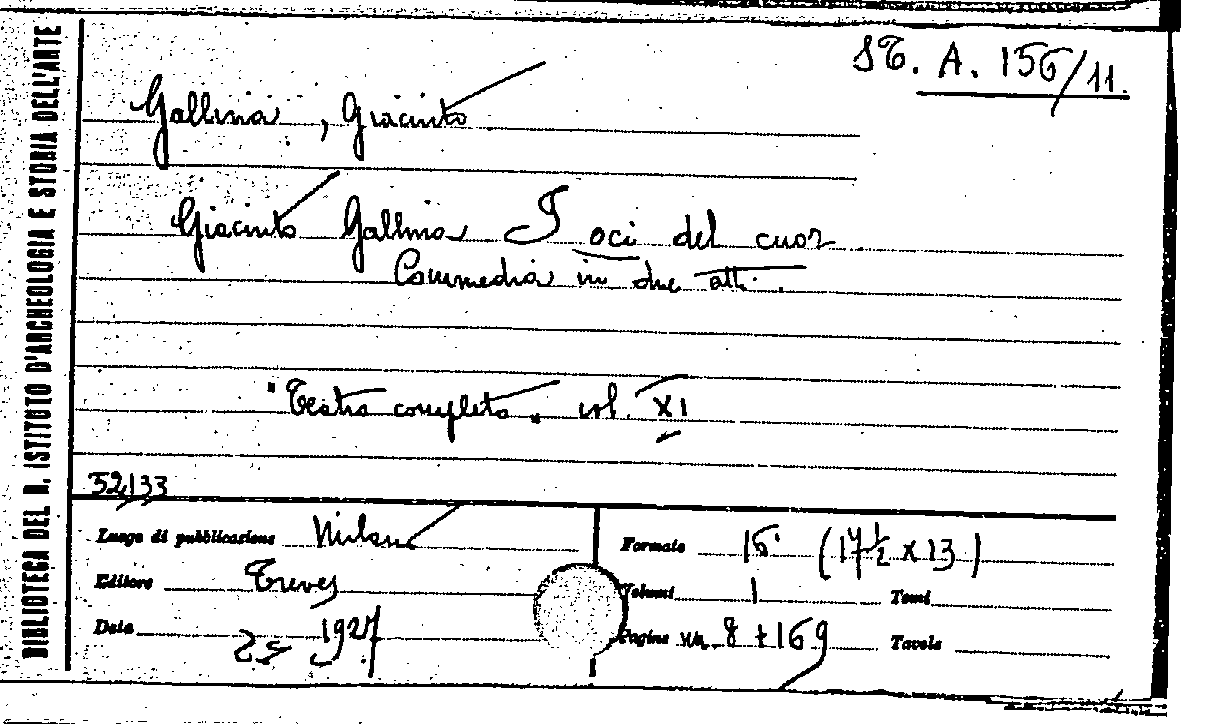 BIBLIOTECA DEL R. ISTITUTO D'ARCHEOLOGIA E STORIA DELL'ARTE
ST. A. 156/11.
Gallina, Giacinto
Giacinto Gallina I oci del cuor
Commedia in due atti.
"Teatro completo" vol. XI
52133
Luogo di pubblicazione Milano
Formato 16° (17½ x 13)
Editore Treves
Volumi 1 Tomi
Data 1927
Pagine 8 + 169 Tavole